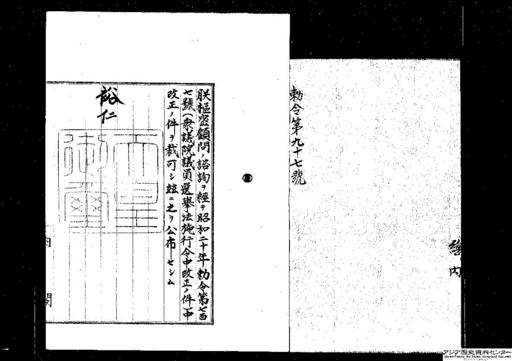 勅令第九十七號
朕樞密顧問ノ諮詢ヲ經テ昭和二十年勅令第七百
七號(衆議院議員選擧法施行令中改正ノ件)中
改正ノ件ヲ裁可シ玆ニ之ヲ公布セシム
裕仁
天皇
御璽
内閣
アジア歴史資料センター